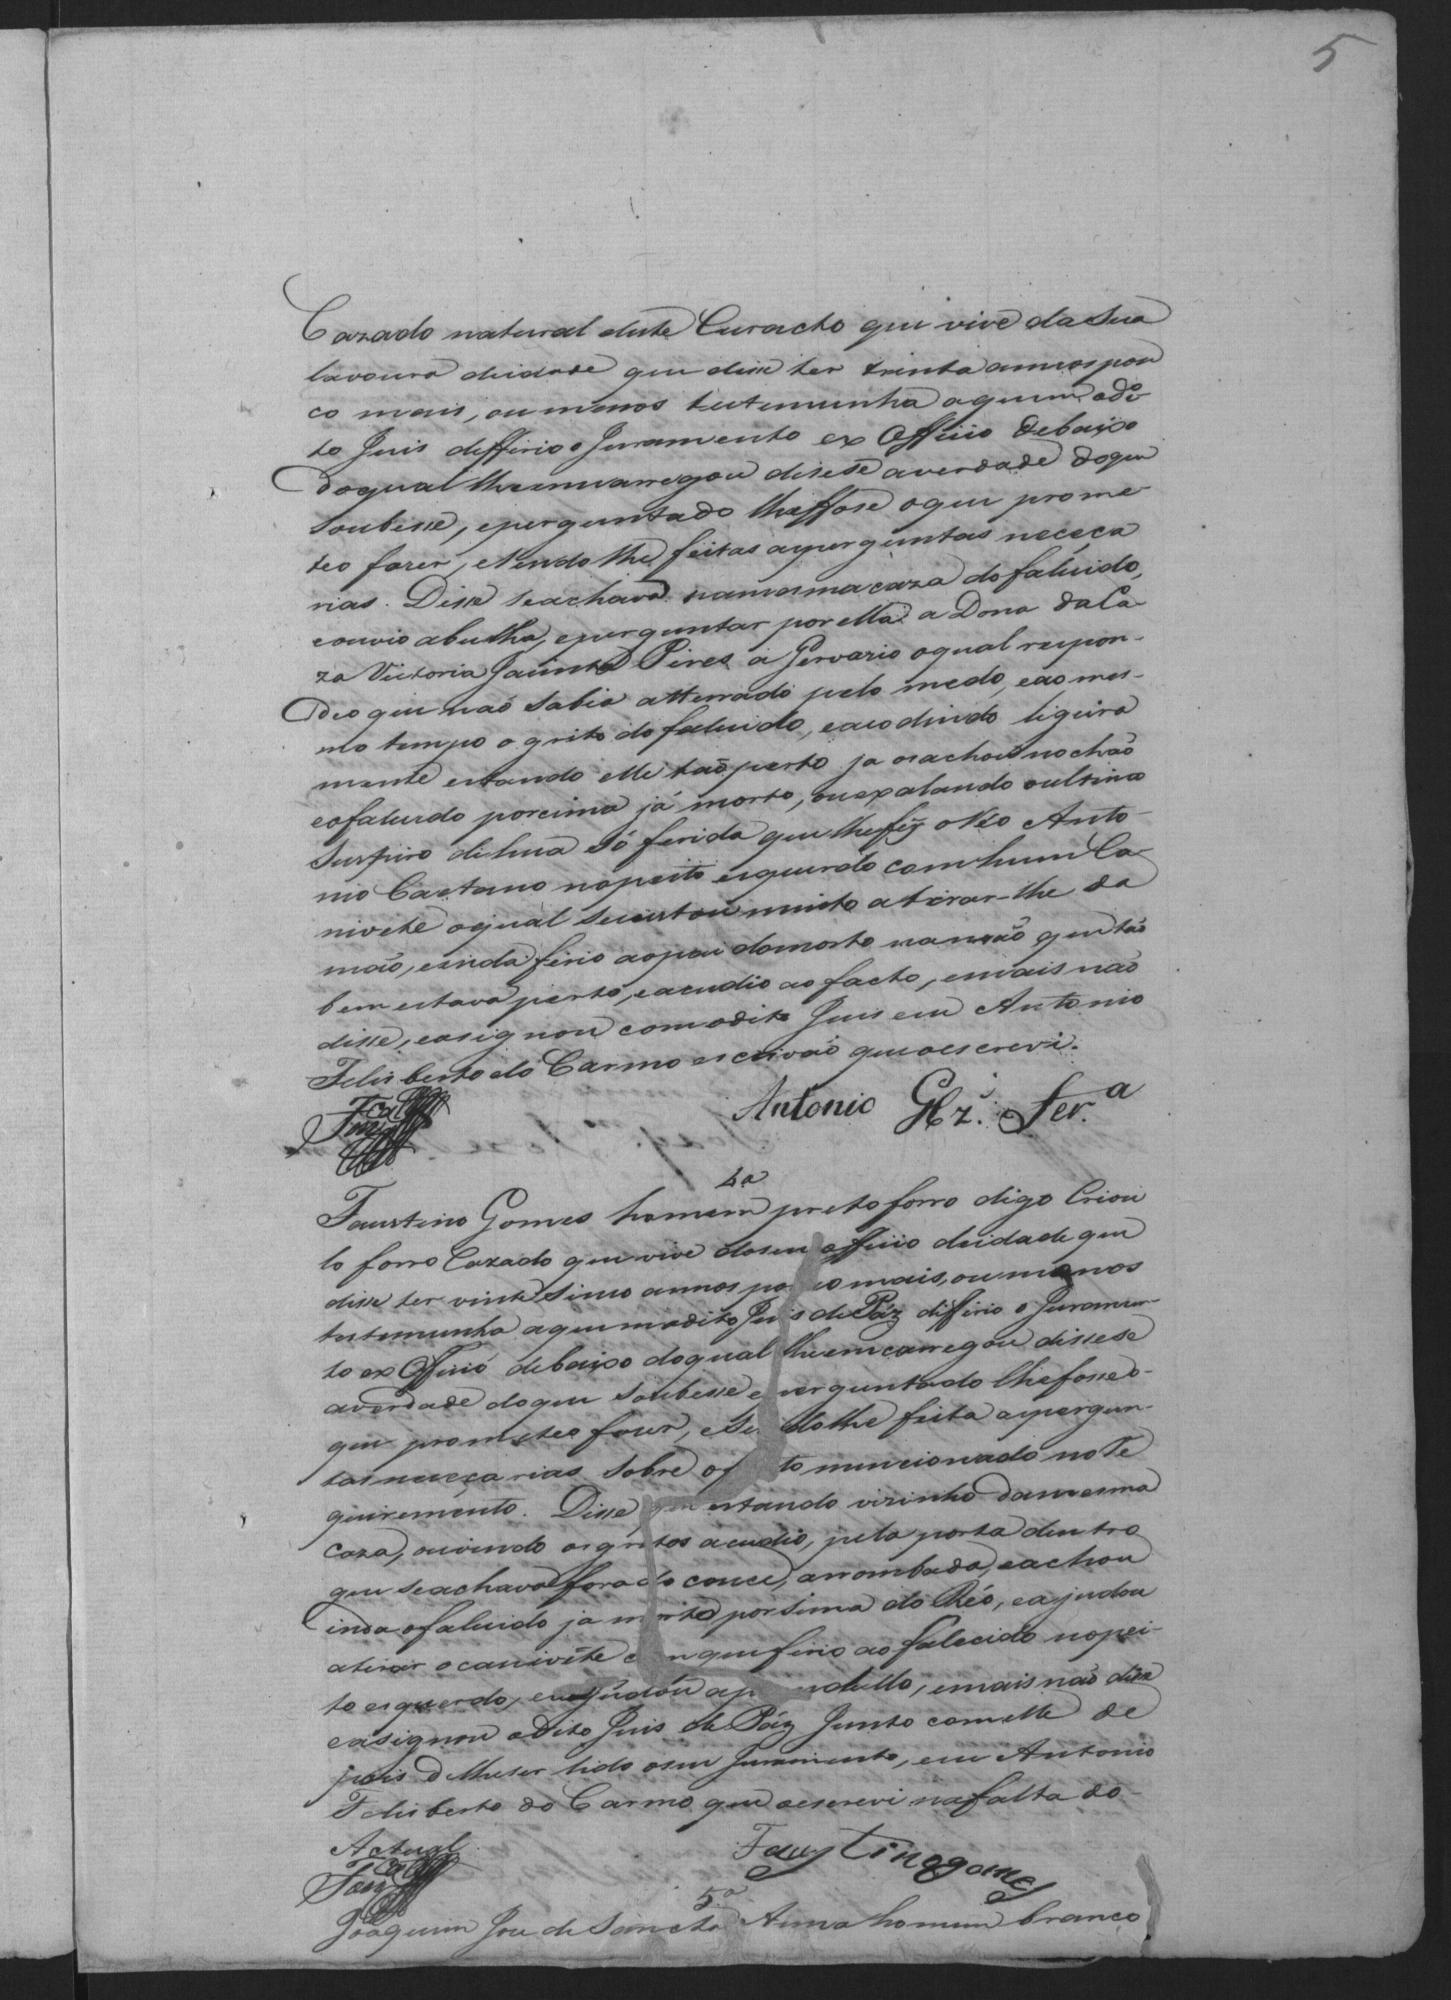 5
Cazado natural deste Curacto que vive da sua
lavoura deidade que disse ter trinta annos pou
co mais, ou menos testemunha aquem odi
to Juis differio o Juramento ex Officio debaixo
doqual lhe emcarregou disese averdade doque
soubesse, eperguntado lheffose oque prome
teo fazer, esendo lhe feitas aperguntas neceça
rias. Disse seachava namesma caza do faluido,
eouvio abulha, eperguntar por ella a Dona da Ca
za Victoria Jacinta Pires a Gervazio oqual respon-
deo que naõ sabia atterrado pelo medo, eao mes-
mo tempo o grito do faluido, eacodindo ligeira
mente estando elle taõ perto ja osachou no chaõ
eofaluido porcima já morto, ou expalando oultimo
suspiro dehuã só ferida que lhefez o Réo Anto-
nio Caetano nopeito esquerdo com hum Ca-
nivete oqual secustou muito atirar-lhe da
mão, eindã ferio aopai domorto namaõ que tão
bem estava perto, eacudio ao facto, emais não
disse, easignou comodito Juis eeu Antonio
Felisberto do Carmo escrivaõ queoescrevi.
Antonio Glz. Fer.ª
4ª
Faustino Gomes homem preto forro digo Criou
lo forro Cazado que vive doseu officio deidade que
disse ter vinte sinco annos pouco mais, ou menos
testemunha aquem odito Juis de Páz differio o Juramen-
to ex Officio debaixo doqual lhe emcarregou dissese
averdade doque soubesse eperguntado lhefosse o-
que prometeo fazer, esendolhe feita apergun-
tas neceçarias sobre ofacto mencionado no Re
querimento. Disse, que estando vizinho damesma
caza, ouvindo osgritos acudio, pela porta dentro
que seachava fora do couce, arrombada, eachou
inda ofaluido ja morto porsima do Réo, eajudou
atirar ocanivete com queferio ao falecido nopei-
to esquerdo, eajudou aprendello, emais naõ disse
easignou odito Juis de Páz Junto comelle de
pois delheser lido oseu Juramento, eeu Antonio
Felisberto do Carmo que oescrevi nafalta do
Actual
Faustinogomes
5ª
Joaquim Joze de Sancta Anna homem branco